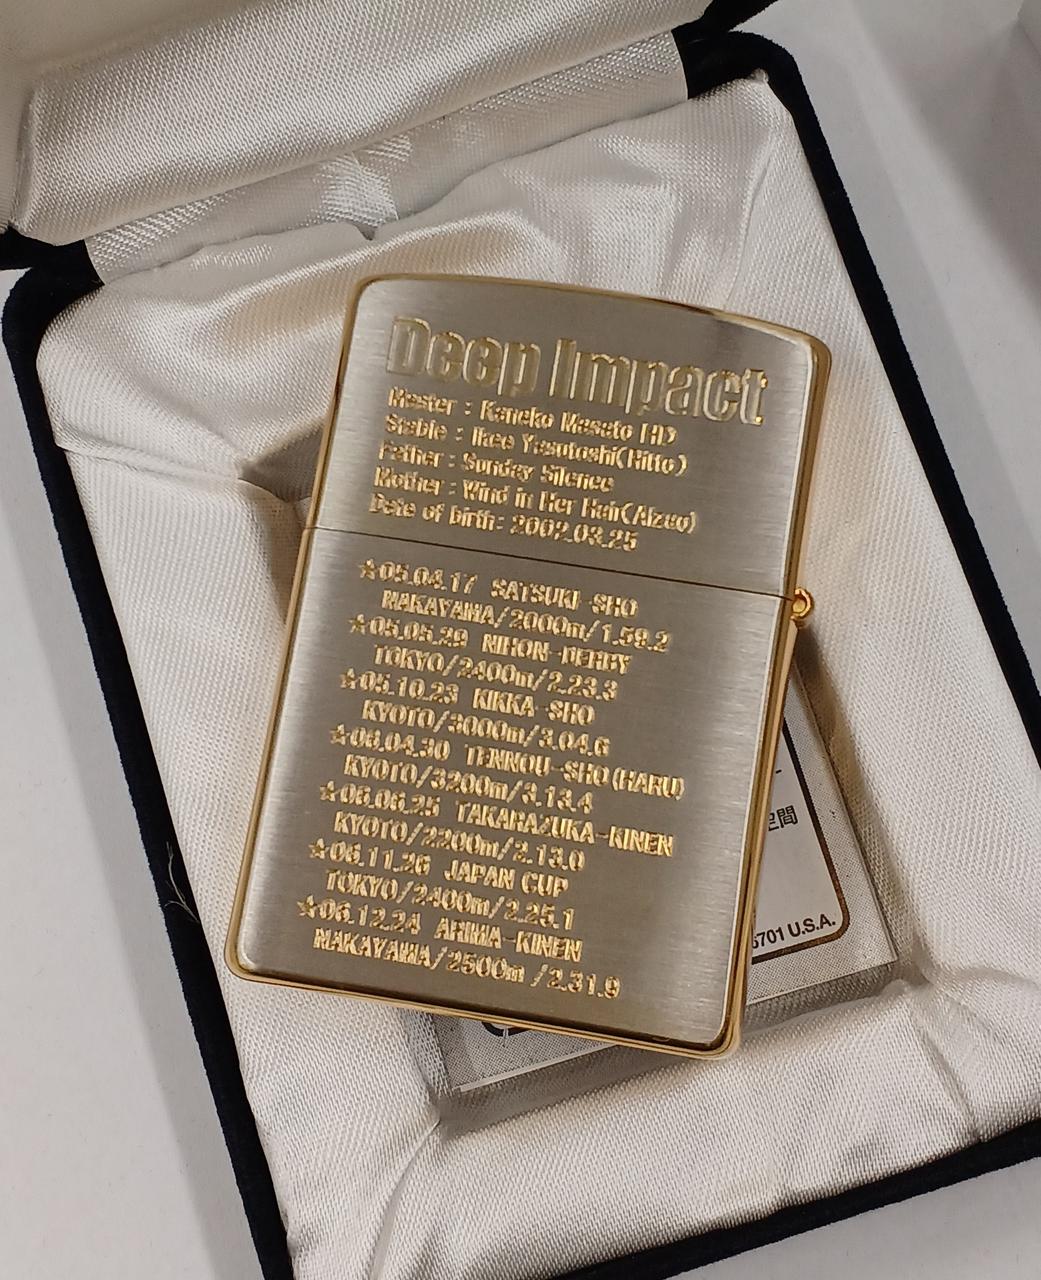 Deep Impact
Master : Kaneko Masato (H)
Stable : Ikee Yasutoshi(Ritto)
Father : Sunday Silence
Mother : Wind in Her Hair(Alzao)
Date of birth: 2002.03.25
☆05.04.17 SATSUKI-SHO
NAKAYAMA/2000m/1.59.2
☆05.05.29 NIHON-DERBY
TOKYO/2400m/2.23.3
☆05.10.23 KIKKA-SHO
KYOTO/3000m/3.04.6
☆06.04.30 TENNOU-SHO(HARU)
KYOTO/3200m/3.13.4
☆06.06.25 TAKARAZUKA-KINEN
KYOTO/2200m/2.13.0
☆06.11.26 JAPAN CUP
TOKYO/2400m/2.25.1
☆06.12.24 ARIMA-KINEN
NAKAYAMA/2500m /2.31.9
空間
6701 U.S.A.